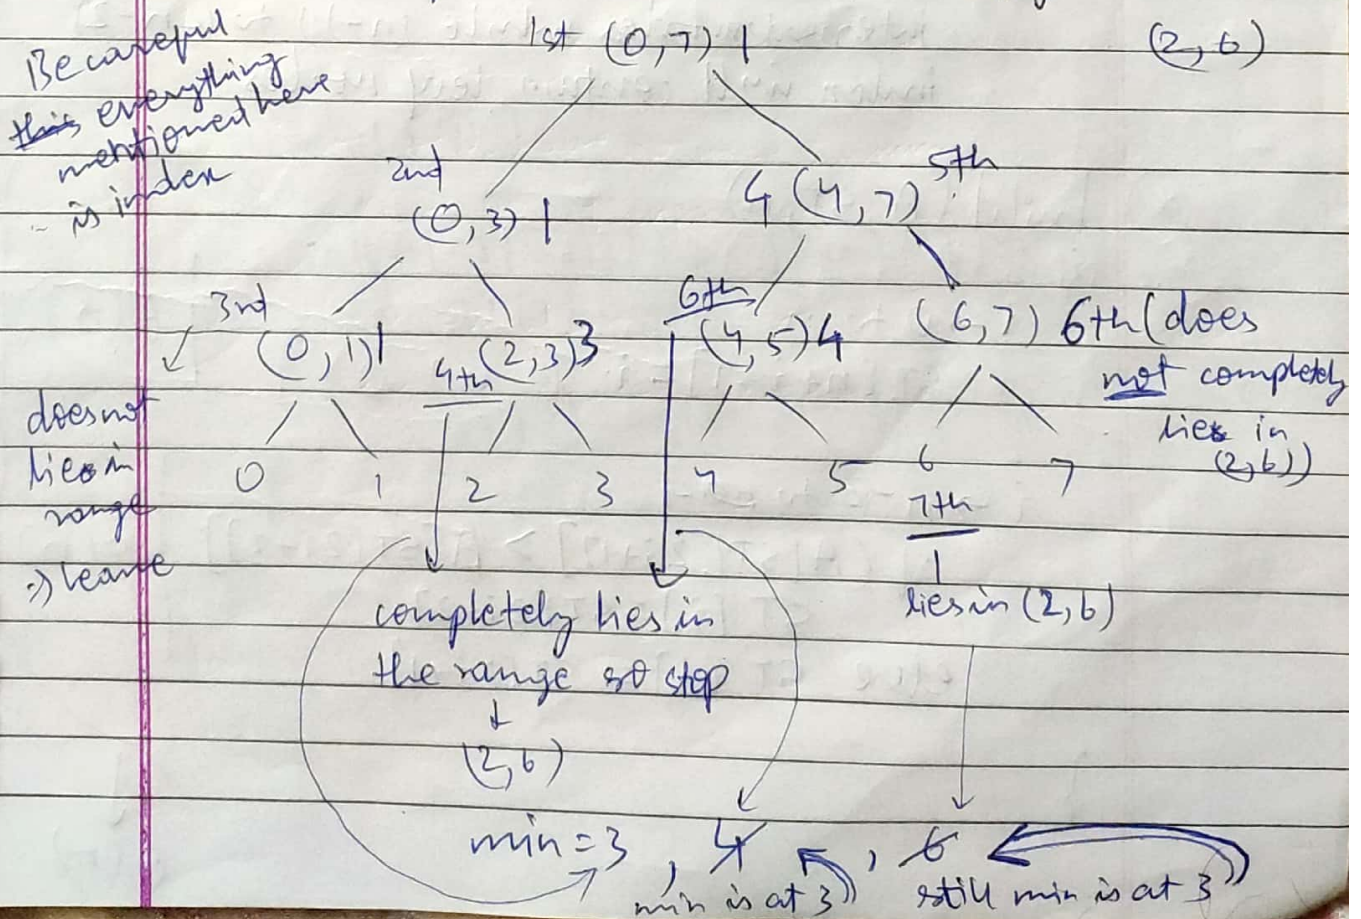 Be careful
this everything
mentioned here
is index
1st (0,7) 1
(2,6)
2nd
(0,3) 1
4 (4,7) 5th
3rd
(0,1) 1
4th (2,3) 3
6th
(4,5) 4
(6,7) 6th (does
not completely
lies in
(2,6))
does not
lies in
range
=) leave
0 1 2 3 4 5 6 7
7th
lies in (2,6)
completely lies in
the range so stop
(2,6)
min = 3 , 4 , 6
min is at 3
still min is at 3